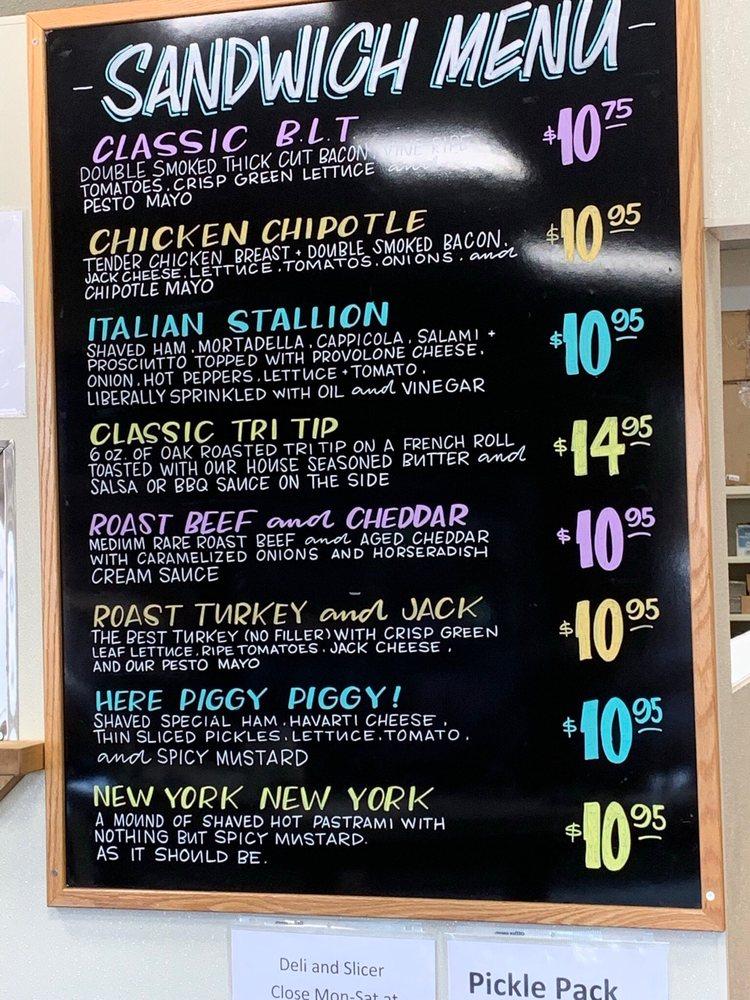 - SANDWICH MENU -
CLASSIC B.L.T $10.75
DOUBLE SMOKED THICK CUT BACON, VINE RIPE
TOMATOES, CRISP GREEN LETTUCE and
PESTO MAYO
CHICKEN CHIPOTLE $10.95
TENDER CHICKEN BREAST + DOUBLE SMOKED BACON,
JACK CHEESE, LETTUCE, TOMATOS, ONIONS, and
CHIPOTLE MAYO
ITALIAN STALLION $10.95
SHAVED HAM, MORTADELLA, CAPPICOLA, SALAMI +
PROSCIUTTO TOPPED WITH PROVOLONE CHEESE,
ONION, HOT PEPPERS, LETTUCE + TOMATO,
LIBERALLY SPRINKLED WITH OIL and VINEGAR
CLASSIC TRI TIP $14.95
6 OZ. OF OAK ROASTED TRI TIP ON A FRENCH ROLL
TOASTED WITH OUR HOUSE SEASONED BUTTER and
SALSA OR BBQ SAUCE ON THE SIDE
ROAST BEEF and CHEDDAR $10.95
MEDIUM RARE ROAST BEEF and AGED CHEDDAR
WITH CARAMELIZED ONIONS AND HORSERADISH
CREAM SAUCE
ROAST TURKEY and JACK $10.95
THE BEST TURKEY (NO FILLER) WITH CRISP GREEN
LEAF LETTUCE, RIPE TOMATOES, JACK CHEESE,
AND OUR PESTO MAYO
HERE PIGGY PIGGY! $10.95
SHAVED SPECIAL HAM, HAVARTI CHEESE,
THIN SLICED PICKLES, LETTUCE, TOMATO,
and SPICY MUSTARD
NEW YORK NEW YORK $10.95
A MOUND OF SHAVED HOT PASTRAMI WITH
NOTHING BUT SPICY MUSTARD.
AS IT SHOULD BE.
Deli and Slicer
Close Mon-Sat at
Pickle Pack